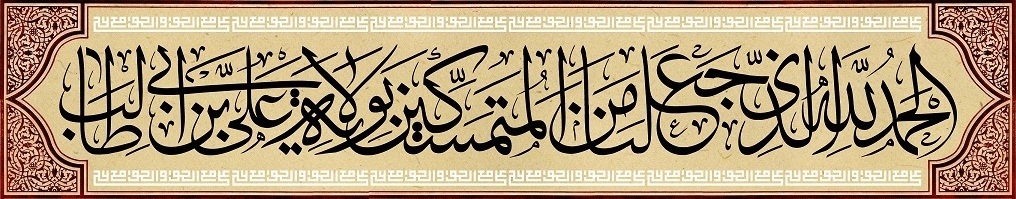 الحمد لله الذی جعلنا من المتمسکین بولایة علی بن ابی طالب